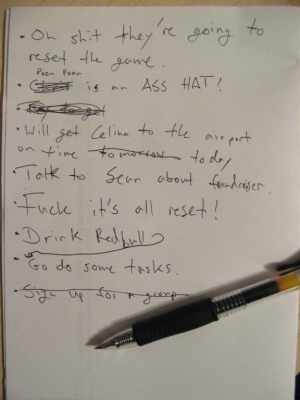 • Oh shit they're going to
reset the game.
Poon Poon
• is an ASS HAT!
• Try to get
• Will get Celina to the airport
on time tomorrow today
• Talk to Sean about fundraiser.
• Fuck it's all reset!
• Drink Redbull
• Go do some tasks.
• Sign up for a group